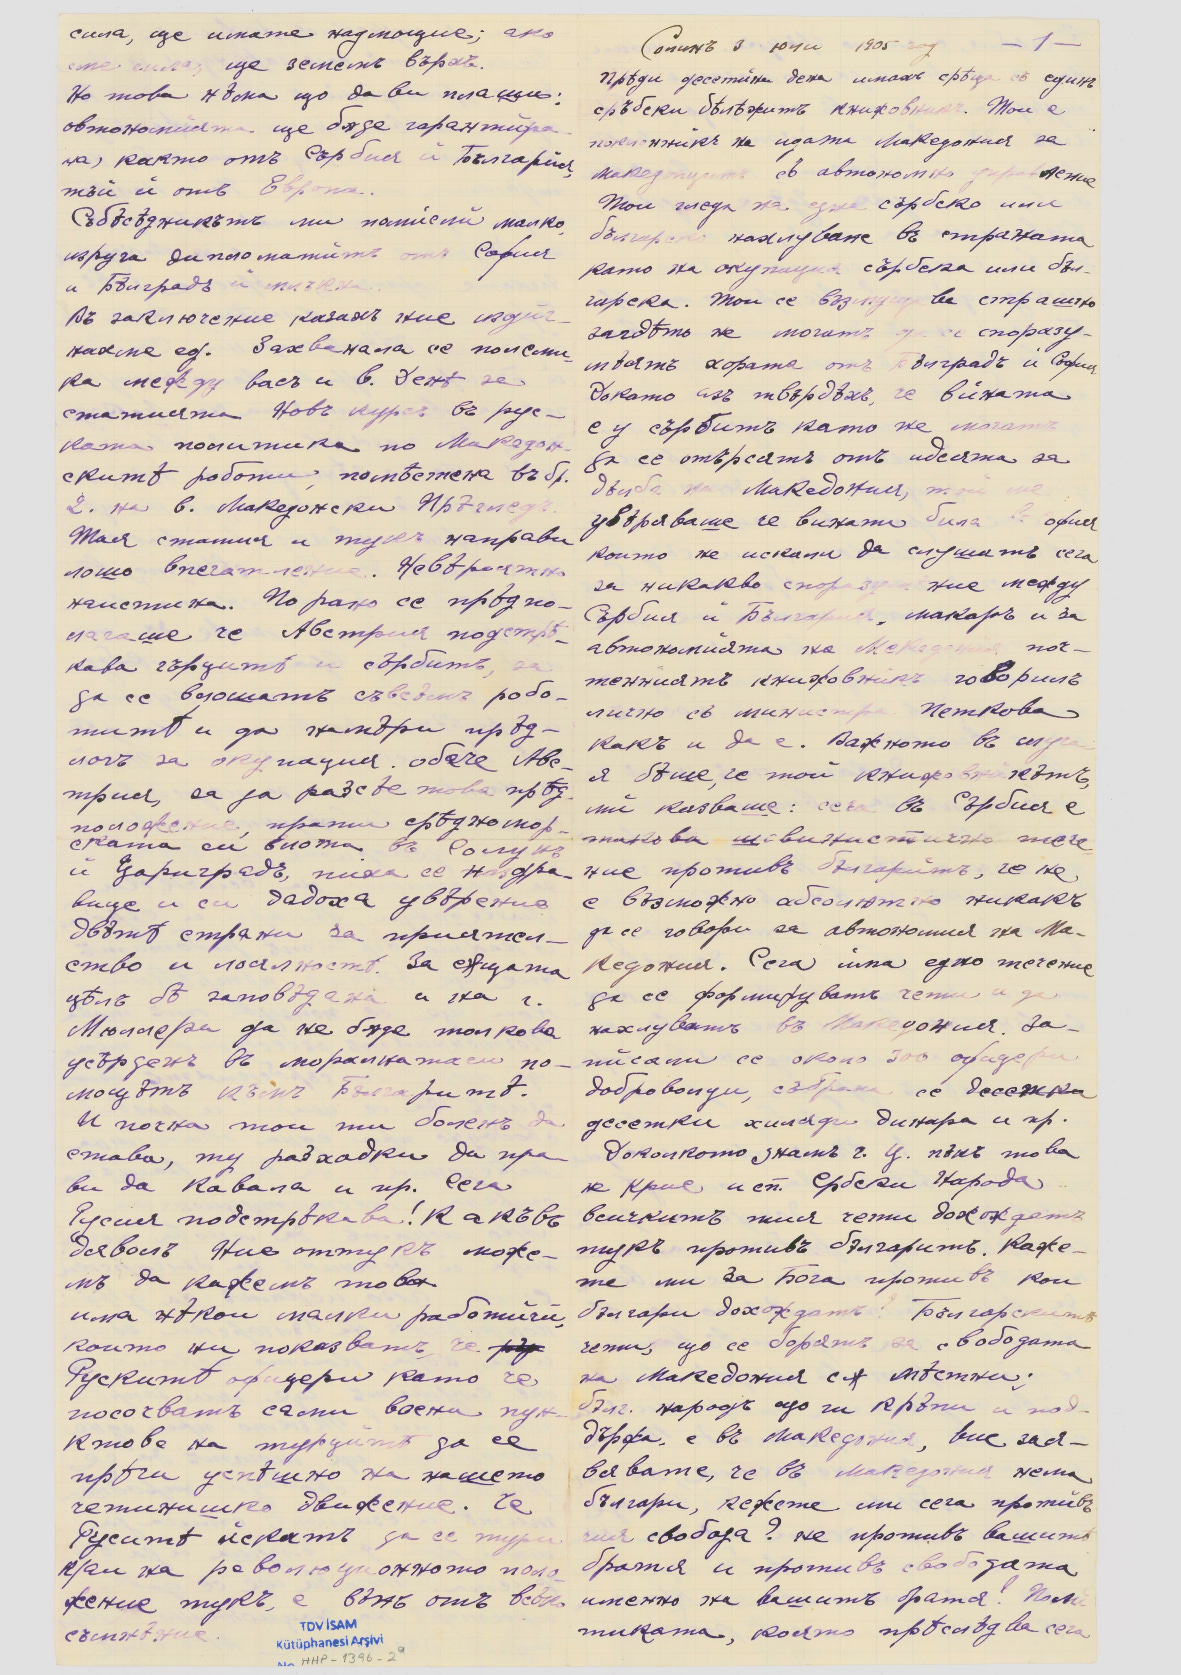 сила, ще имате надмощие; ако
ще земемъ върхъ.
Но това нѣма що да ви плаши:
автономията ще бѫде гарантира-
на, както отъ Сърбия и България,
тъй и отъ Европа.
Събѣседникътъ ми помисли малко,
изруга дипломатитѣ отъ София
и Бѣлградъ и млъкна.
Въ заключение казахъ ние
Захванала се полеми-
ка между васъ и в. День за
статията Новъ курсъ въ рус-
ката политика по Македон-
скитѣ работи, помѣстена въ бр.
2. на в. Македонски Прѣгледъ.
Тая статия и тукъ направи
лошо впечатление. Невѣроятно
наистина. По рано се прѣдпо-
лагаше че Австрия подстрѣ-
кава гърцитѣ и сърбитѣ, за
да се влошатъ съвсѣмъ рабо-
титѣ и да намѣри прѣд-
логъ за окупация. обаче Авс-
трия, за да разсѣе това прѣд-
положение, прати срѣдномор-
ската си флота въ Солунъ
и Цариградъ, пиха се наздра-
вице и си дадоха увѣрение
двѣтѣ страни за приятел-
ство и лоялность. За сѫщата
цѣль бѣ заповѣдано и на г.
Мюллера да не бѫде толкова
усърденъ въ моралната си по-
мощь къмъ Българитѣ.
И почна той ту боленъ да
става, ту разходки да пра-
ви да Кавала и пр. Сега
Русия подстрѣкава! Какъвъ
дяволъ Ние оттукъ може-
мъ да кажемъ това
има нѣкои малки работици,
които ни показватъ, че
Рускитѣ офицери като че
посочватъ сами воени пун-
ктове на турцитѣ да се
прѣчи успѣшно на нашето
четнишко движение. Че
Руситѣ искатъ да се тури
край на революционното поло-
жение тукъ, е вънъ отъ всѣко
съмнѣние.
TDV İSAM
Kütüphanesi Arşivi
No HHP-1396-2ª
Солунъ 3 юли 1905 год — 1 —
Прѣди десетина дена имахъ срѣща съ единъ
сръбски бѣлѣжитъ книжовникъ. Той е
поклонникъ на идята Македония за
македонцитѣ съ автономно управление
Той гледа на едно сърбско или
българско нахлуване въ страната
като на окупация сърбска или бъл-
гарска. Той се възмущава страшно
загдѣто не могатъ да се споразу-
мѣятъ хората отъ Бѣлградъ и София
Докато азъ твърдѣхъ, че вината
е у сърбитѣ като не могатъ
да се отърсятъ отъ идеята за
дѣлба на Македония, той ме
увѣряваше че винати била въ София
които не искали да слушатъ сега
за никакво споразумение между
Сърбия и България, макаръ и за
автономията на Македония поч-
тенниятъ книжовникъ говорилъ
лично съ министра Петкова
какъ и да е. Важното въ случа-
я бѣше, че той книжовникътъ,
ми казваше: сега въ Сърбия е
такова шовинистично тече
ние противъ българитѣ, че не
е възможно абсолютно никакъ
да се говори за автономия на Ма-
кедония. Сега има едно течение
да се формируватъ чети и да
нахлуватъ въ Македония. За-
писали се около 300 офицери
доброволци, събрани се десетки
десетки хиляди динара и пр.
Доколкото знамъ г. Ц. пъкъ това
не крие и сп. Сърбски Народа
всичкитѣ тия чети дохождатъ
тукъ противъ българитѣ. Каже-
те ми за Бога противъ кои
българи дохождатъ? Българскитѣ
чети, що се борятъ за свободата
на Македония сѫ мѣстни;
бълг. народъ що ги крѣпи и под-
държа, е въ Македония, вие зая-
вявате, че въ Македония нема
българи, кажете ми сега противъ
чия свобода? не противъ вашитѣ
братя и противъ свободата
именно на вашитѣ братя! Поли
тиката, която прѣслѣдва сега